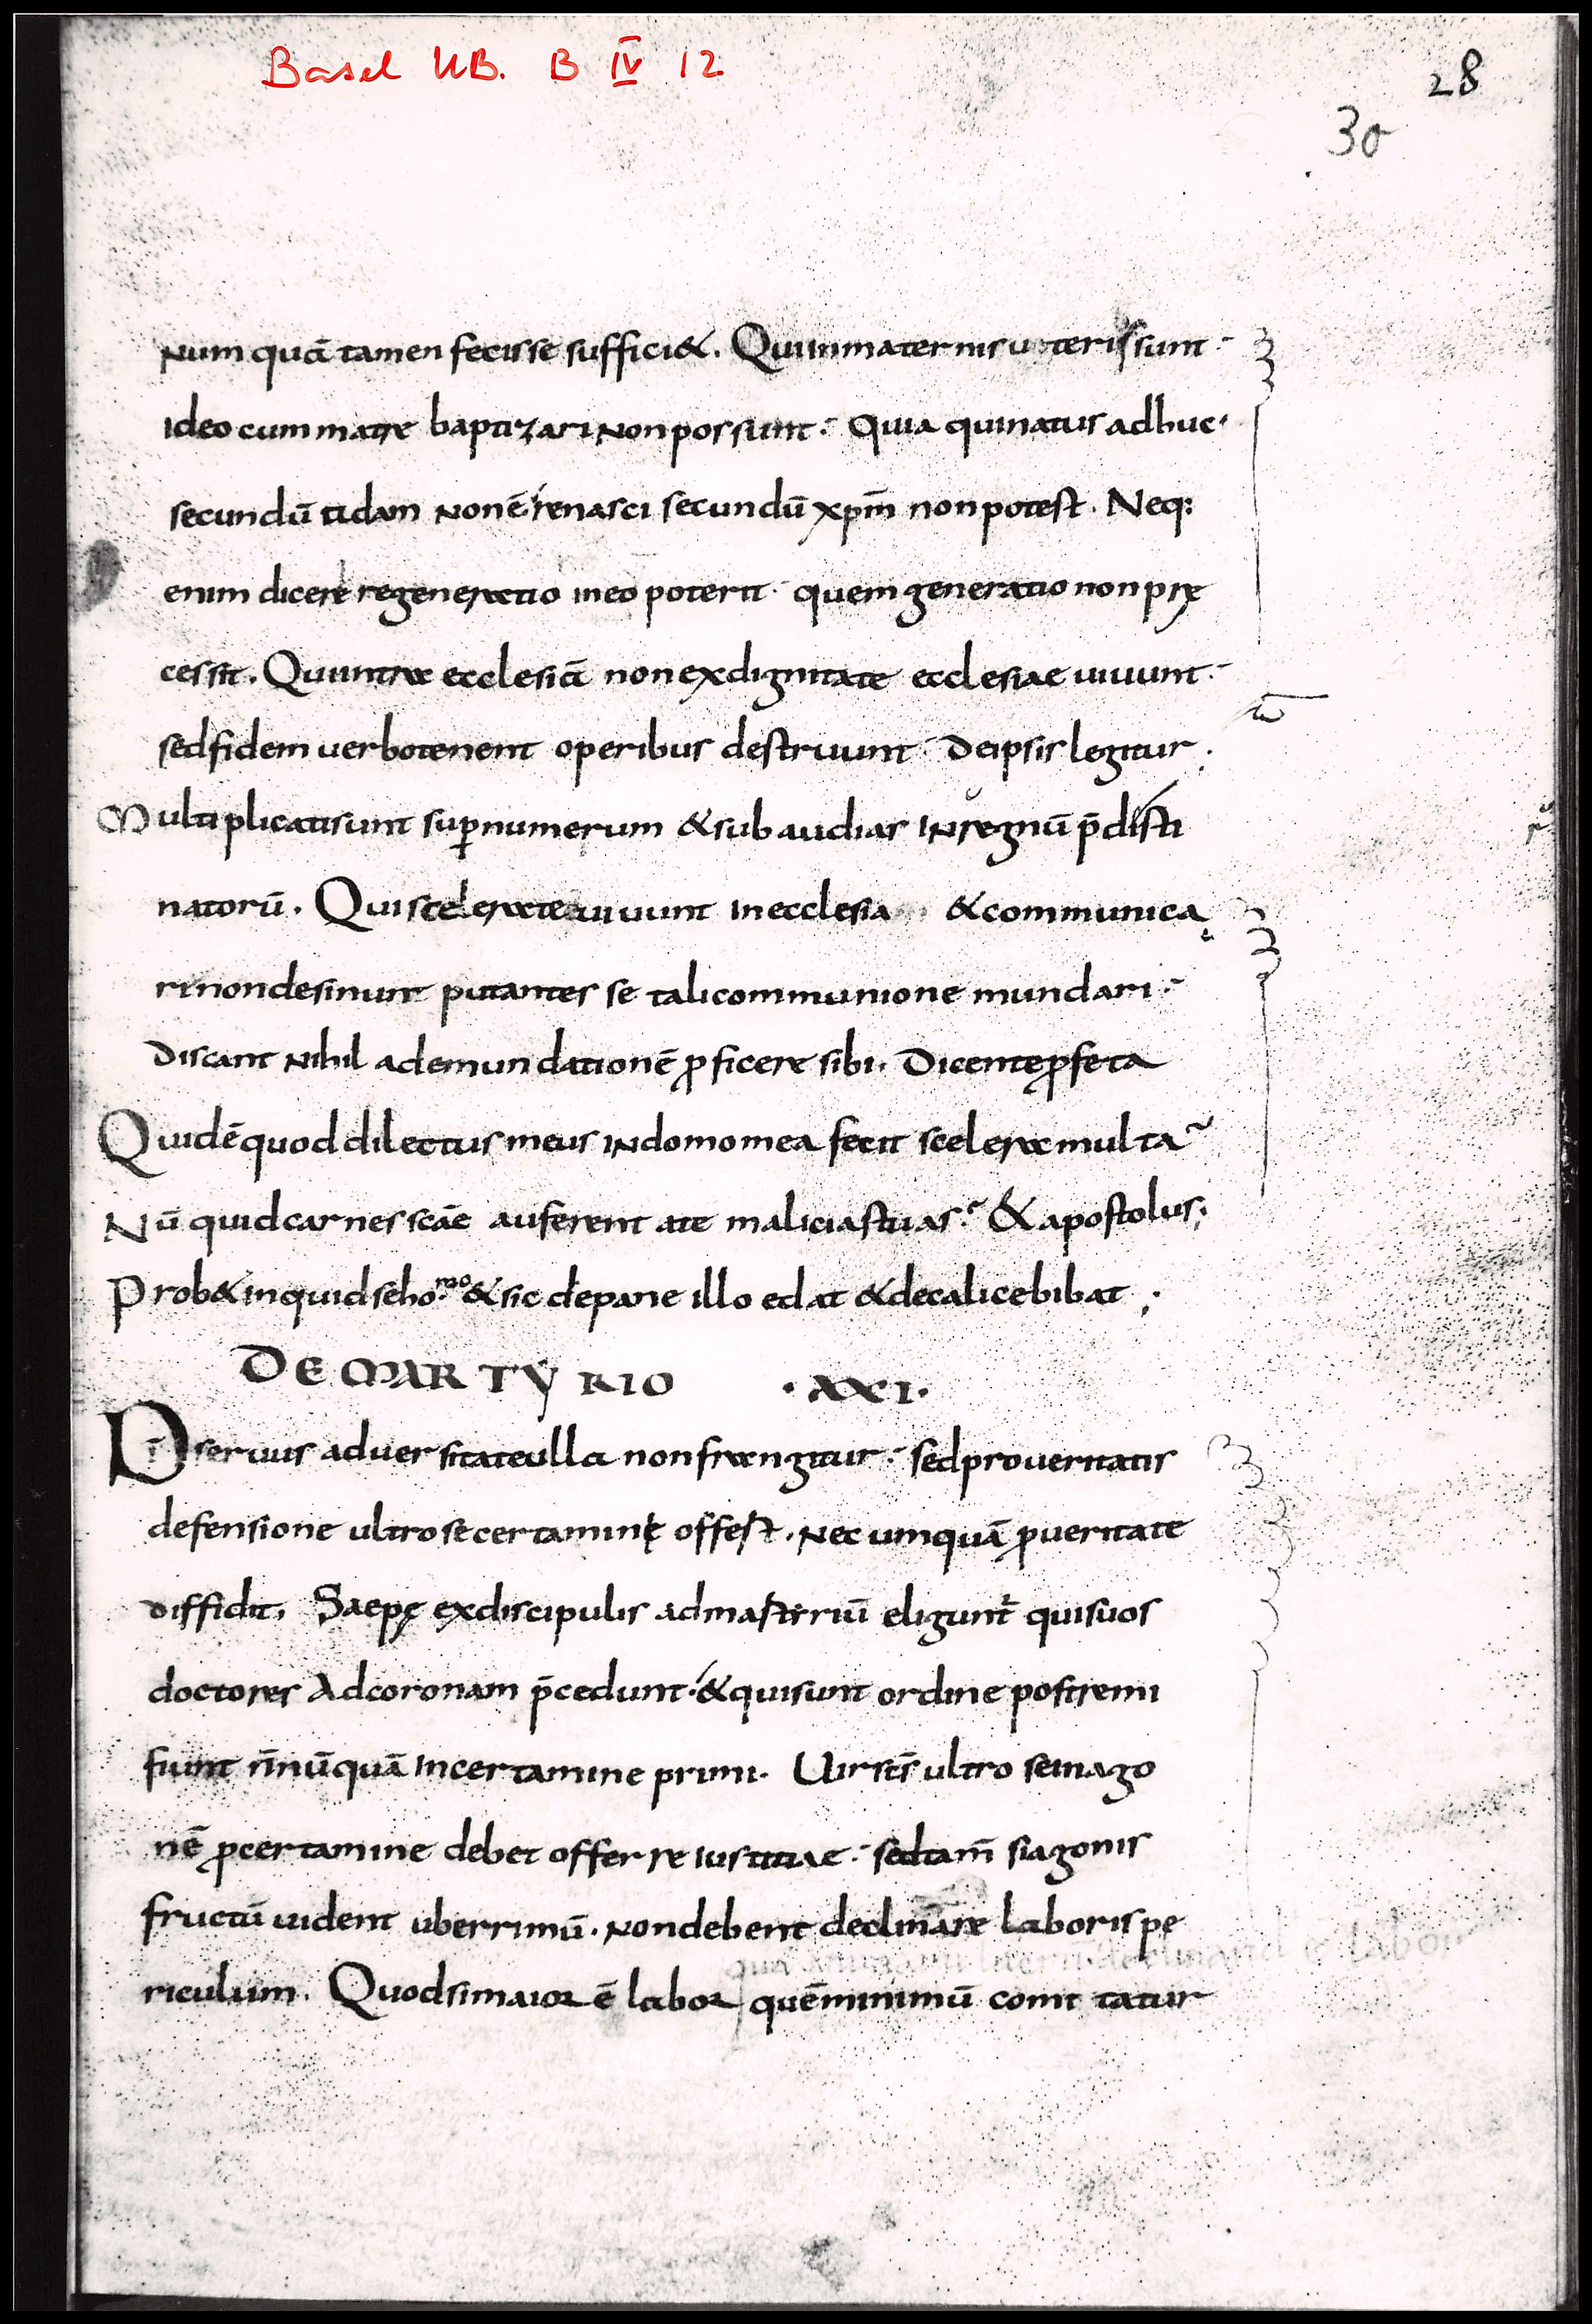 Basel UB. B IV 12
28
30
Num quā tamen fecisse suffici&. Qui in maternis uteris sunt
Ideo cum matre baptizari Non possunt. Quia qui natus adhuc
secundū adam Non ē renasci secundū xp̄m non potest. Neq:
enim dicere regeneratio in eo poterit quem generatio non prę
cessit. Qui intra ecclesiā non ex dignitate ecclesiae uiuunt
sed fidem uerbo tenent operibus destruunt De ipsis legitur.
Multiplicati sunt sup̱ numerum & subaudias In regnū p̄disti
natorū. Qui scelerate uiuunt in ecclesia & communica
ri non desinunt putantes se tali communione mundari
Discant Nihil ad emundationē ꝓficere sibi. Dicente ꝓfeta
Quid ē quod dilectus meus In domo mea fecit scelera multa
Nū quid carnes scāe auferent a te malicias tuas. & apostolus;
Prob& inquid se homo & sic de pane illo edat & de calice bibat;
DE MARTYRIO .XXI.
Dī seruus aduersitate ulla non frangitur. sed pro ueritatis
defensione ultro se certamini offest. Nec umquā ꝓ ueritate
diffidit. Saepę ex discipulis ad mastirriū eligunt̄ qui suos
doctores Ad coronam p̄cedunt. & qui sunt ordine postremi
fiunt n̄nūquā In certamine primi. Uir sc̄s ultro se in ago
nē ꝓ certamine debet offerre iustitiae. sed tam̄ si agonis
fructū uident uberrimū. Non debent declinare laboris pe
riculum. Quod si maior ē labor quē minimū comitatur